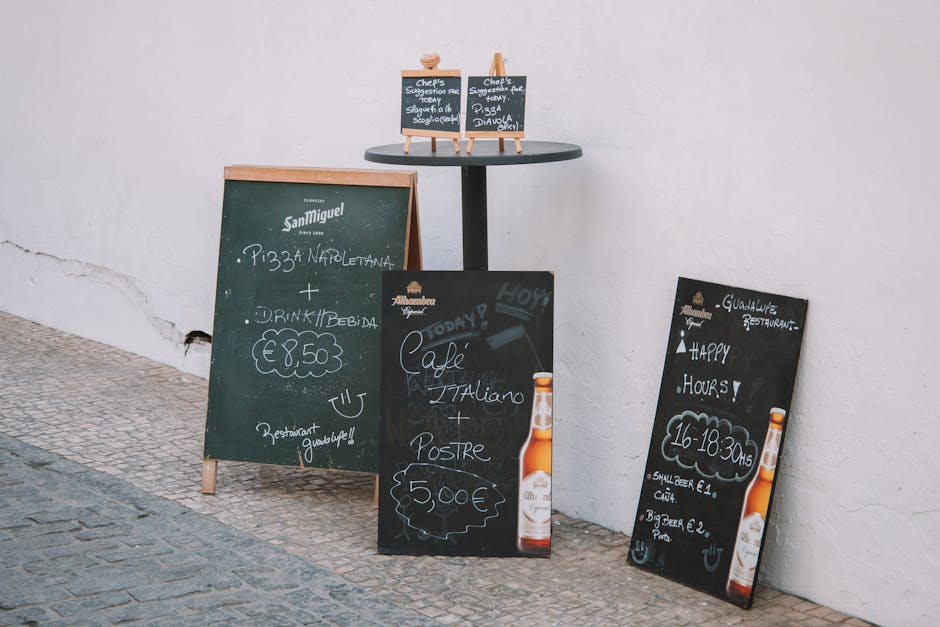 Chef's
Suggestion for
TODAY
scoglio(seafood)
Chef's
Suggestion for
TODAY.
Pizza
DiAVOLA
(spicy)
CERVEZAS
SanMiguel
SINCE 1890
.Pizza NAPOLETANA
+
.DRiNK//BEBIDA
€8,50
Restaurant
Guadalupe!!
Alhambra
Especial
TODAY!
HOY!
Café
ITALiano
+
POSTRE
5,00€
Alhambra
Especial
-GUADALUPE
RESTAURANT-
HAPPY
HOURS!
16-18:30HS
SMALL BEER €1.
CAÑA.
Big BEER €2.
Pinta.